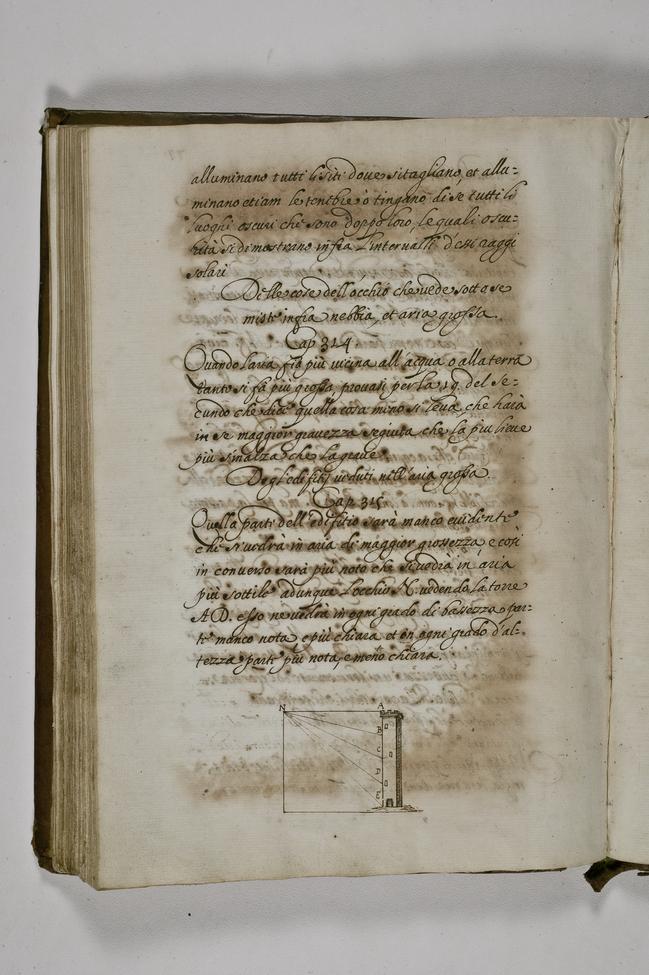 alluminano tutti li siti dove si tagliano, et allu-
minano etiam le tenebre ò tingano di se tutti li
luoghi oscuri che sono doppo loro, le quali oscu-
rità si dimostrano infra l'intervalli d'essi raggi
solari
Delle cose dell'occhio che vede sotta se
miste infra nebbia, et aria grossa.
Cap 314.
Quando l'aria fia più vicina all'acqua o alla terra
tanto si fa più grossa provasi per la 19. del se-
cundo che dice quella cosa mino si leva, che harà
in se maggior gravezza seguita che la piu lieve
più s'inalza che la grave.
Degl'edifitij veduti nell'aria grossa.
Cap 315
Quella parte dell'edifitio sarà manco evidente
che si vedrà in aria di maggior grossezza e così
in converso sarà più noto che si vedrà in aria
più sottile adunque l'occhio N. vedendo la torre
A D. esso ne vedrà in ogni grado di bassezza par-
te manco nota, e più chiara et in ogni grado d'al-
tezza parte più nota, e meno chiara.
N A
B
C
D
E